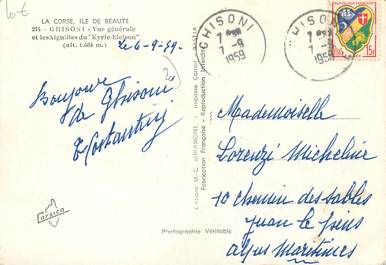 10€
LA CORSE, ILE DE BEAUTE
214 - GHISONI - Vue générale
et les Aiguilles du "Kyrie-Eleïson"
(alt. 1.604 m.)
Le 6-9-59-
Bonjour
de Ghisoni
Corsica
Photographie Véritable
Fabrication Française - Reproduction Interdite
GHISONI
7-9
1959
GHISONI
7-9
1959
15F
Mademoiselle
Lorenzi Micheline
10 chemin des sables
Juan les Pins
Alpes Maritimes